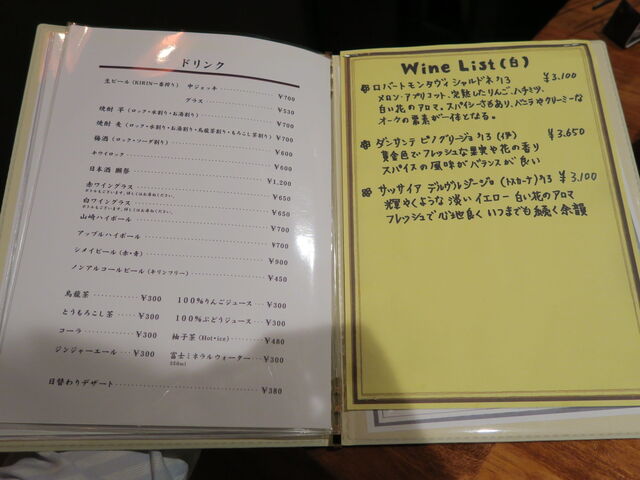 ドリンク
生ビール (KIRIN一番搾り) 中ジョッキ ¥700
グラス ¥530
焼酎 芋 (ロック・水割り・お湯割り) ¥700
焼酎 麦 (ロック・水割り・お湯割り・烏龍茶割り・もろこし茶割り) ¥700
梅酒 (ロック・ソーダ割り) ¥600
キウイロック ¥600
日本酒 獺祭 ¥1,200
赤ワイングラス ¥650
ボトルもございます。詳しくはお尋ねください。
白ワイングラス ¥650
ボトルもございます。詳しくはお尋ねください。
山崎ハイボール ¥700
アップルハイボール ¥700
シメイビール (赤・青) ¥900
ノンアルコールビール (キリンフリー) ¥450
烏龍茶 ¥300 100%りんごジュース ¥300
とうもろこし茶 ¥300 100%ぶどうジュース ¥300
コーラ ¥300 柚子茶 (Hot・ice) ¥480
ジンジャーエール ¥300 富士ミネラルウォーター ¥300
日替わりデザート ¥380
Wine List (白)
ロバートモンダヴィ シャルドネ ¥3,100
メロン・アプリコット、完熟したりんご、ハチミツ、
白い花のアロマ。スパイシーさもあり、バニラやクリーミーな
オークの要素が一体となる。
ダンサンテ ピノグリージョ ¥3,650
黄金色でフレッシュな果実や花の香り
スパイスの風味がバランスが良い
サッサイア デルヴルジージョ (トスカーナ) ¥3,100
輝やくような 淡い イエロー 白い花のアロマ
フレッシュで心地良く いつまでも続く余韻